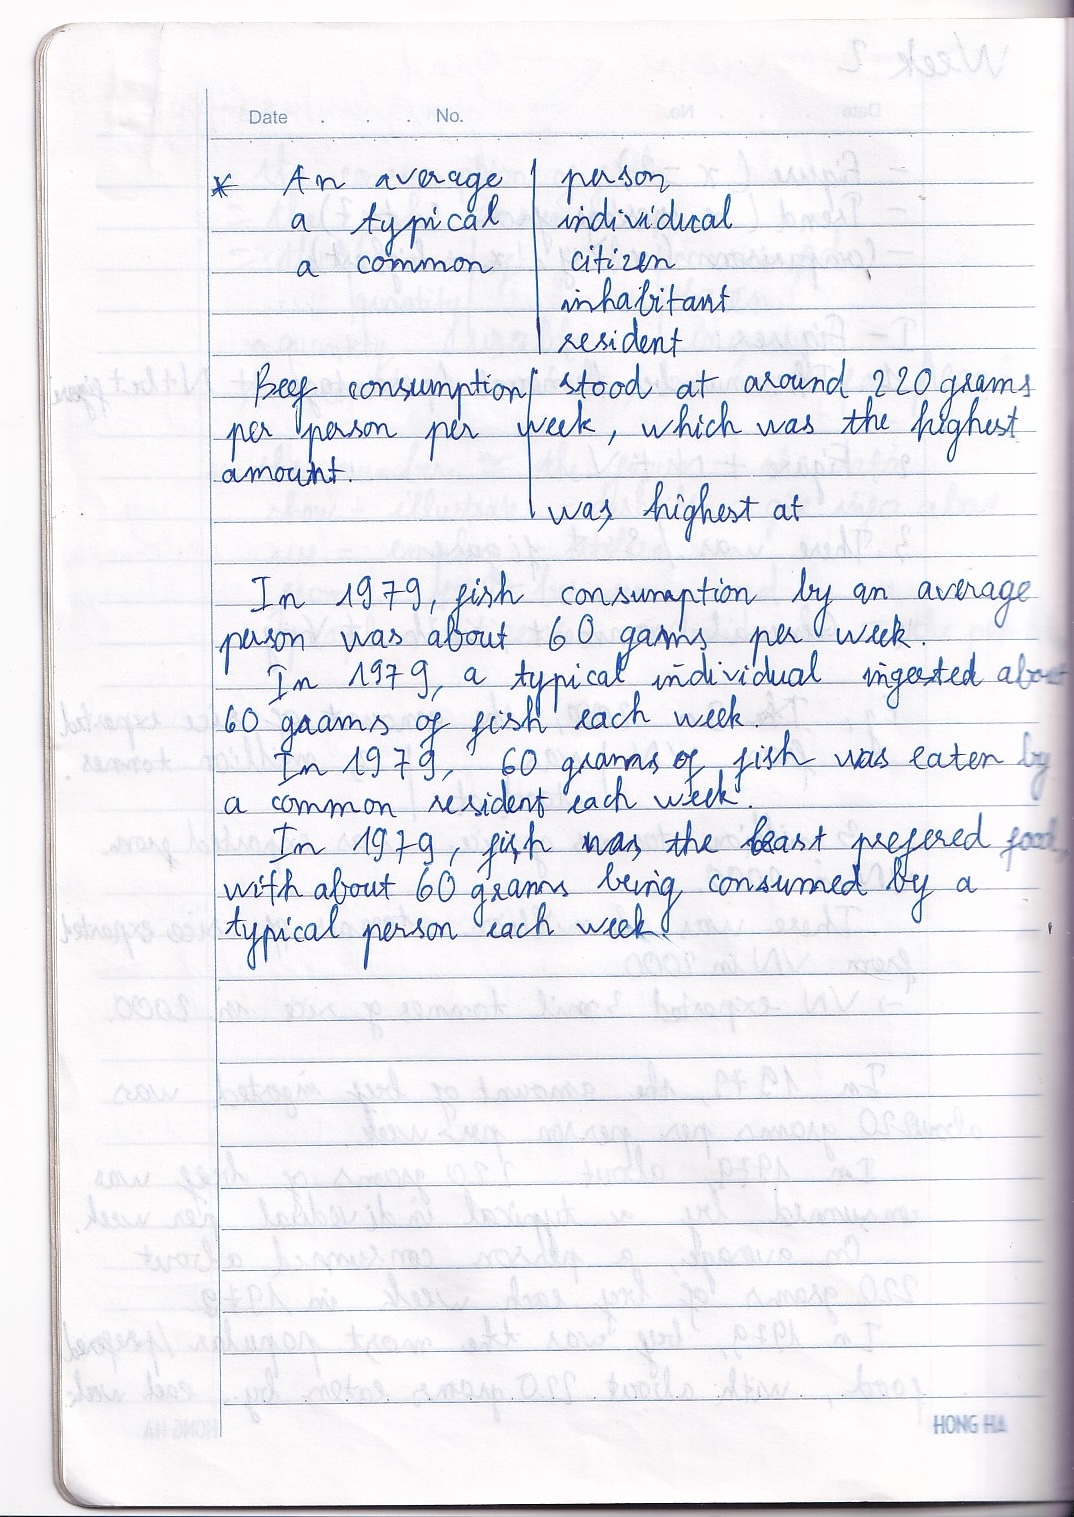 Date . . . No.
* An average | person
a typical | individual
a common | citizen
inhabitant
resident
Beef consumption | stood at around 220 grams
per person per week, which was the highest
amount.
was highest at
In 1979, fish consumption by an average
person was about 60 gams per week.
In 1979, a typical individual ingested about
60 graams of fish each week.
In 1979, 60 grams of fish was eaten by
a common resident each week.
In 1979, fish was the least prefered food,
with about 60 grams being consumed by a
typical person each week.
HONG HA